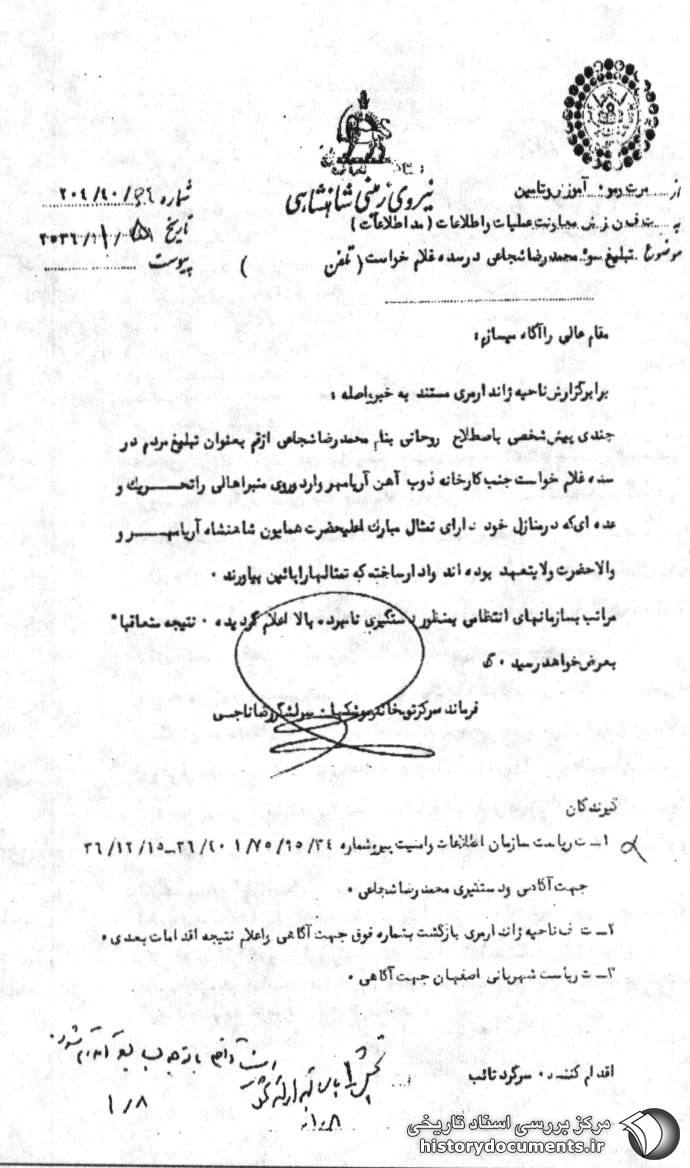 نیروی زمینی شاهنشاهی
شماره ۲۰۱/۴۰/
تاریخ
پیوست
از
به معاونت عملیات و اطلاعات (مد اطلاعات)
موضوع تبلیغ سوء محمد رضا شجاعی در سده غلام خواست (تلفن )
مقام عالی را آگاه میسازم:
برابر گزارش ناحیه ژاندارمری مستند به خبر واصله:
چندی پیش شخصی باصطلاح روحانی بنام محمد رضا شجاعی از قم بعنوان تبلیغ مردم در
سده غلام خواست جنب کارخانه ذوب آهن آریامهر وارد و روی منبر اهالی را تحریک و
عده ای که در منازل خود دارای تمثال مبارک اعلیحضرت همایون شاهنشاه آریامهر و
والاحضرت ولایتعهد بوده اند وادار ساخته که تمثالها را پائین بیاورند .
مراتب بسازمانهای انتظامی بمنظور دستگیری نامبرده بالا اعلام گردیده . نتیجه متعاقبا"
بعرض خواهد رسید .
فرماند مرکز توپخانه و موشکها . سرلشکر رضا ناجی
گیرندگان
۱ـ ریاست سازمان اطلاعات و امنیت پیرو شماره
جهت آگاهی و دستگیری محمد رضا شجاعی .
۲ـ ف ناحیه ژاندارمری بازگشت بشماره فوق جهت آگاهی و اعلام نتیجه اقدامات بعدی .
۳ـ ریاست شهربانی اصفهان جهت آگاهی .
اقدام کننده . سرگرد تائب
۱/۸
مرکز بررسی اسناد تاریخی
historydocuments.ir